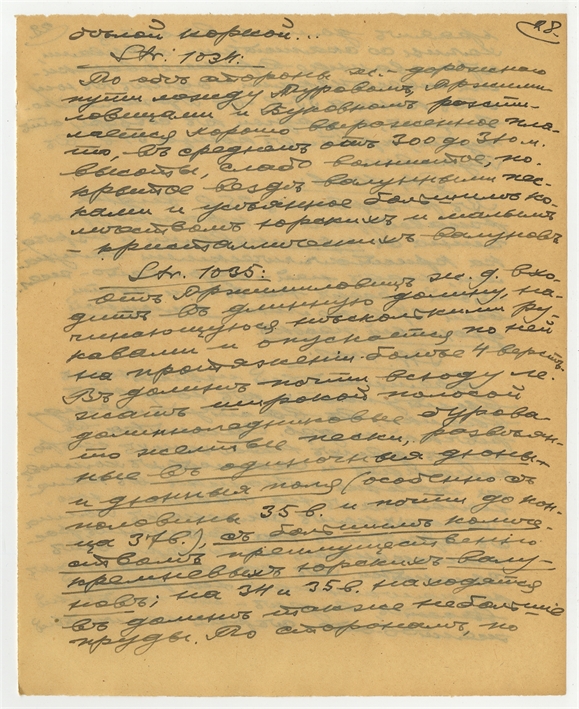 28.
бѣлой коркой...
Str. 1034:
По обѣ стороны ж.-дорожнаго
пути между Туровомъ, Пржими-
ловицами и Буковномъ рассти-
лается хорошо выраженное пла-
то, въ среднемъ отъ 300 до 310 м.
высоты, слабо волнистое, по-
крытое вездѣ валунными пес-
ками и усѣянное большимъ ко-
личествомъ юрскихъ и малымъ
- кристаллическихъ валуновъ
Str. 1035:
отъ Пржимиловицъ ж. д. вхо-
дитъ въ длинную долину, на-
чинающуюся нѣсколькими ру-
кавами и опускается по ней
на протяженіи болѣе 4 верстъ.
Въ долинѣ почти всюду ле-
жатъ широкой полосой
долинноледниковые бурова-
то желтые пески, развѣян-
ные въ одиночныя дюны
и дюнныя поля (особенно съ
половины 35 в. и почти до кон-
ца 37 в.), съ большимъ количе-
ствомъ преимущественно
кремневыхъ юрскихъ валу-
новъ; на 34 и 35 в. находятся
въ долинѣ также небольшіе
пруды. По сторонамъ, по